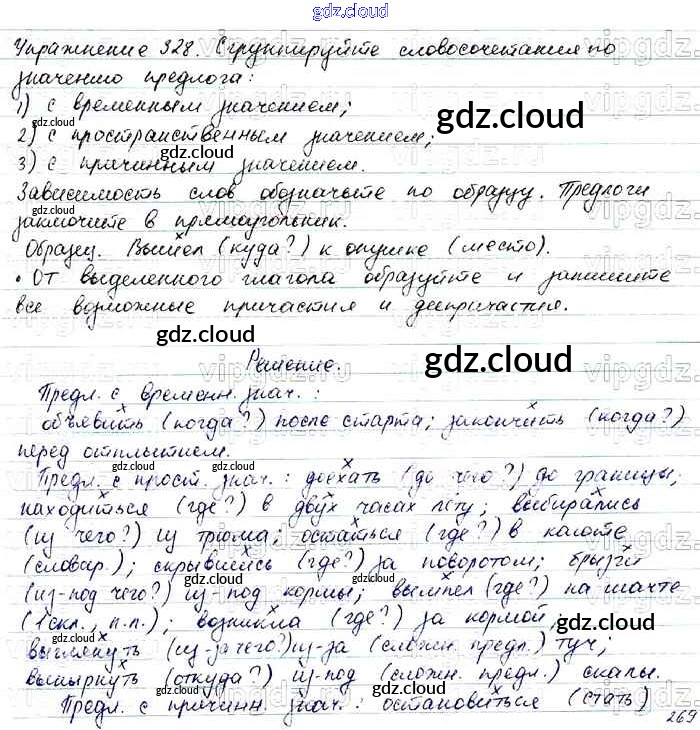 gdz.cloud
Упражнение 328. Сгруппируйте словосочетания по
значению предлога:
1) с временным значением;
2) с пространственным значением;
3) с причинным значением.
Зависимость слов обозначьте по образцу. Предлоги
заключите в прямоугольник.
Образец. Вышел (куда?) к опушке (место).
• От выделенного глагола образуйте и запишите
все возможные причастия и деепричастия.
Решение.
Предл. с временн. знач.:
объявить (когда?) после старта; закончить (когда?)
перед отплытием.
Предл. с прост. знач.: доехать (до чего?) до границы;
находиться (где?) в двух часах лёту; выбирались
(из чего?) из трюма; остаться (где?) в каюте
(словар.); скрывшись (где?) за поворотом; брызги
(из-под чего?) из-под кормы; вымпел (где?) на мачте
(1 скл., п.п.); возникла (где?) за кормой,
выглянуть (из-за чего?) из-за (сложн. предл.) туч;
вынырнуть (откуда?) из-под (сложн. предл.) скалы.
Предл. с причинн. знач.: остановиться (стать)
269